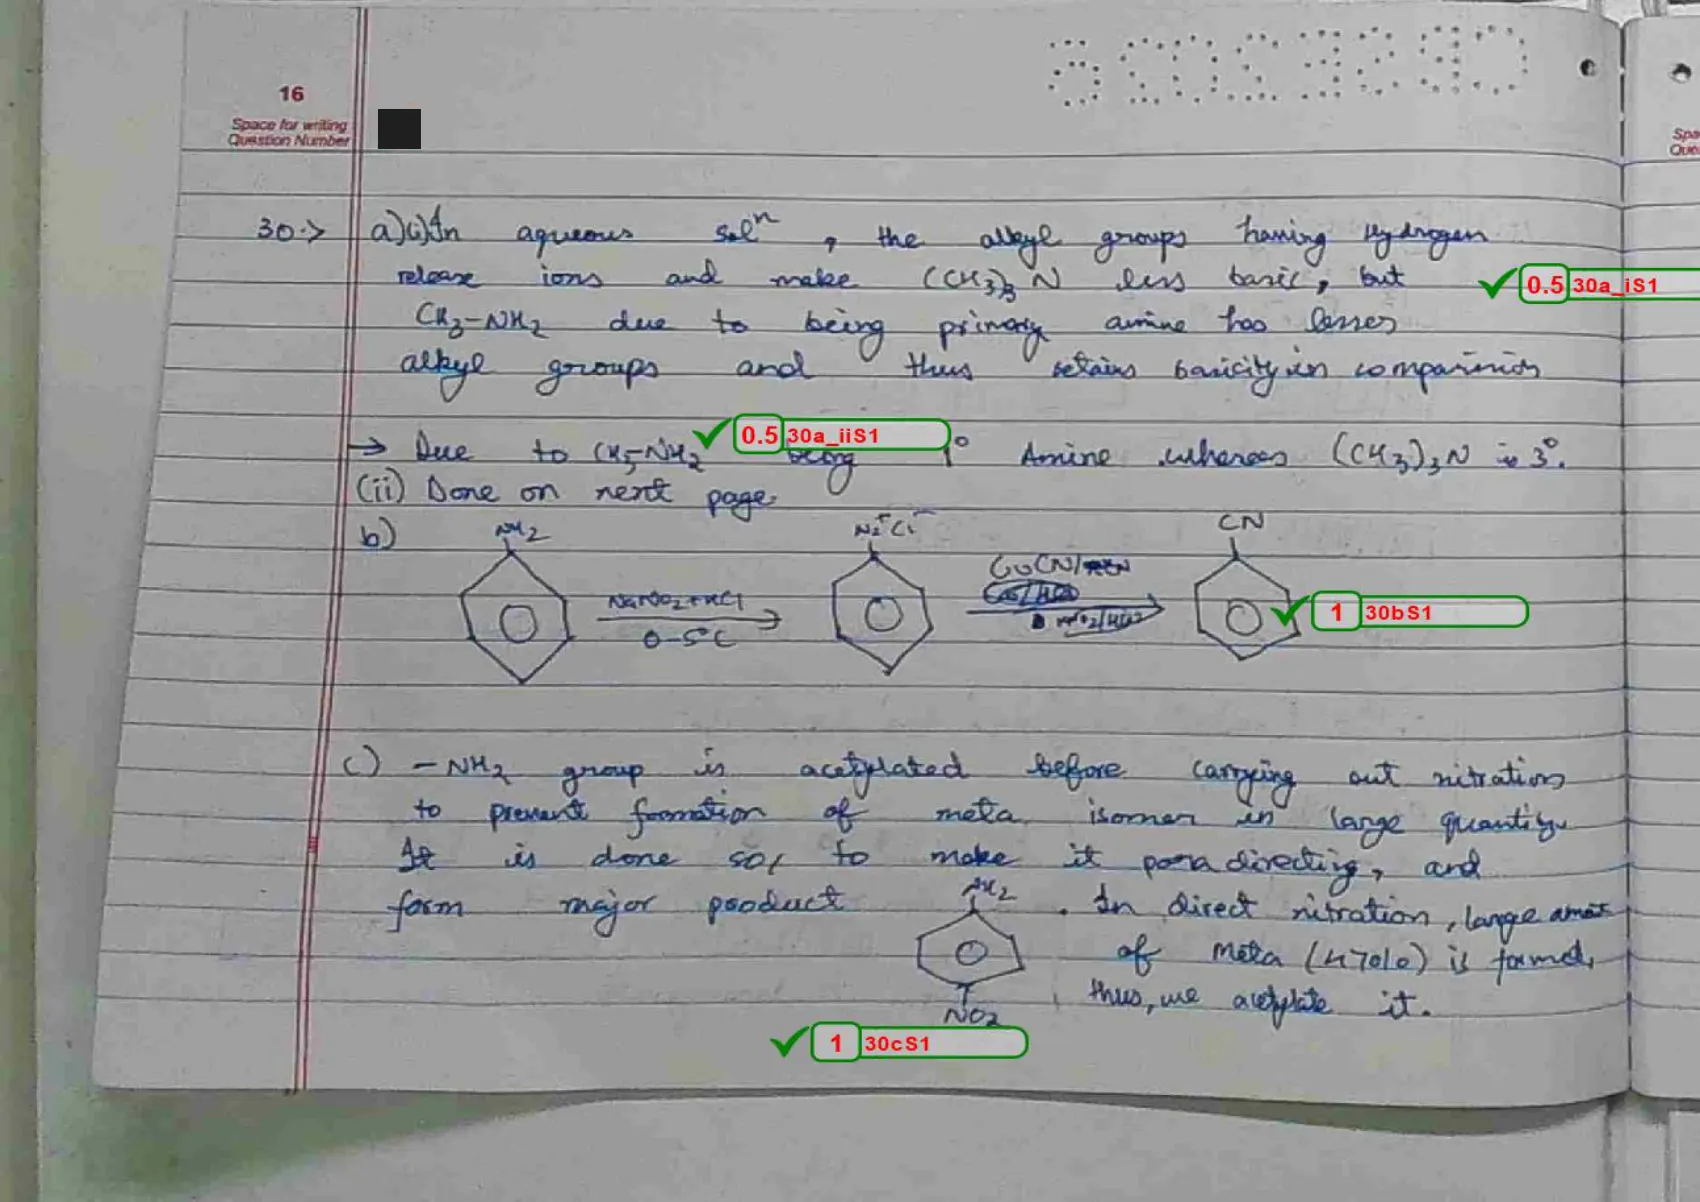 16
Space for writing
Question Number
30.> a)(i) In aqueous solⁿ, the alkyl groups having Hydrogen
release ions and make (CH3)3 N less basic, but
0.5 30a_iS1
CH3-NH2 due to being primary amine has lesser
alkyl groups and thus retains basicity in comparision
0.5 30a_iiS1
→ Due to CH3-NH2 being 1° Amine whereas (CH3)3N is 3°.
(ii) Done on next page.
b) NH2 N2⁺Cl⁻ CN
NaNO2+HCl CuCN/
0-5°C
1 30bS1
c) -NH2 group is acetylated before carrying out nitration
to prevent formation of meta isomer in large quantity.
It is done so, to make it para directing, and
form major product NH2 . In direct nitration, large amot
of meta (47%) is formed,
thus, we acetylate it.
NO2
1 30cS1
Spa
Que